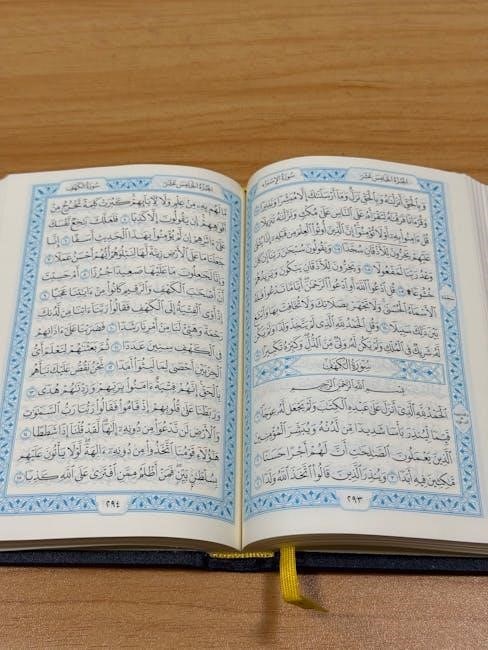 الجزء الخامس عشر
سورة الإسراء
وَبِٱلْحَقِّ أَنزَلْنَٰهُ وَبِٱلْحَقِّ نَزَلَۗ وَمَآ أَرْسَلْنَٰكَ إِلَّا مُبَشِّرًا وَنَذِيرًا ١٠٥
وَقُرْءَانًا فَرَقْنَٰهُ لِتَقْرَأَهُۥ عَلَى ٱلنَّاسِ عَلَىٰ مُكْثٍ وَنَزَّلْنَٰهُ تَنزِيلًا ١٠٦
قُلْ ءَامِنُوا۟ بِهِۦٓ أَوْ لَا تُؤْمِنُوٓا۟ۚ إِنَّ ٱلَّذِينَ أُوتُوا۟ ٱلْعِلْمَ مِن قَبْلِهِۦٓ إِذَا يُتْلَىٰ
عَلَيْهِمْ يَخِرُّونَ لِلْأَذْقَانِ سُجَّدًا ١٠٧ وَيَقُولُونَ سُبْحَٰنَ رَبِّنَآ إِن كَانَ
وَعْدُ رَبِّنَا لَمَفْعُولًا ١٠٨ وَيَخِرُّونَ لِلْأَذْقَانِ يَبْكُونَ وَيَزِيدُهُمْ
خُشُوعًا۩ ١٠٩ قُلِ ٱدْعُوا۟ ٱللَّهَ أَوِ ٱدْعُوا۟ ٱلرَّحْمَٰنَۖ أَيًّا مَّا تَدْعُوا۟ فَلَهُ
ٱلْأَسْمَآءُ ٱلْحُسْنَىٰۚ وَلَا تَجْهَرْ بِصَلَاتِكَ وَلَا تُخَافِتْ بِهَا وَٱبْتَغِ
بَيْنَ ذَٰلِكَ سَبِيلًا ١١٠ وَقُلِ ٱلْحَمْدُ لِلَّهِ ٱلَّذِى لَمْ يَتَّخِذْ وَلَدًا وَلَمْ يَكُن
لَّهُۥ شَرِيكٌ فِى ٱلْمُلْكِ وَلَمْ يَكُن لَّهُۥ وَلِىٌّ مِّنَ ٱلذُّلِّۖ وَكَبِّرْهُ تَكْبِيرًۢا ١١١
سورة الكهف
بِسْمِ ٱللَّهِ ٱلرَّحْمَٰنِ ٱلرَّحِيمِ
ٱلْحَمْدُ لِلَّهِ ٱلَّذِىٓ أَنزَلَ عَلَىٰ عَبْدِهِ ٱلْكِتَٰبَ وَلَمْ يَجْعَل لَّهُۥ عِوَجَاۜ ١
قَيِّمًا لِّيُنذِرَ بَأْسًا شَدِيدًا مِّن لَّدُنْهُ وَيُبَشِّرَ ٱلْمُؤْمِنِينَ
ٱلَّذِينَ يَعْمَلُونَ ٱلصَّٰلِحَٰتِ أَنَّ لَهُمْ أَجْرًا حَسَنًا ٢
مَّٰكِثِينَ فِيهِ أَبَدًا ٣ وَيُنذِرَ ٱلَّذِينَ قَالُوا۟ ٱتَّخَذَ ٱللَّهُ وَلَدًا ٤
٢٩٣
الجزء الخامس عشر
سورة الكهف
مَّا لَهُم بِهِۦ مِنْ عِلْمٍ وَلَا لِءَابَآئِهِمْۚ كَبُرَتْ كَلِمَةً تَخْرُجُ مِنْ
أَفْوَٰهِهِمْۚ إِن يَقُولُونَ إِلَّا كَذِبًا ٥ فَلَعَلَّكَ بَٰخِعٌ نَّفْسَكَ
عَلَىٰٓ ءَاثَٰرِهِمْ إِن لَّمْ يُؤْمِنُوا۟ بِهَٰذَا ٱلْحَدِيثِ أَسَفًا ٦ إِنَّا
جَعَلْنَا مَا عَلَى ٱلْأَرْضِ زِينَةً لَّهَا لِنَبْلُوَهُمْ أَيُّهُمْ أَحْسَنُ عَمَلًا ٧
وَإِنَّا لَجَٰعِلُونَ مَا عَلَيْهَا صَعِيدًا جُرُزًا ٨ أَمْ حَسِبْتَ
أَنَّ أَصْحَٰبَ ٱلْكَهْفِ وَٱلرَّقِيمِ كَانُوا۟ مِنْ ءَايَٰتِنَا عَجَبًا ٩
إِذْ أَوَى ٱلْفِتْيَةُ إِلَى ٱلْكَهْفِ فَقَالُوا۟ رَبَّنَآ ءَاتِنَا مِن لَّدُنكَ
رَحْمَةً وَهَيِّئْ لَنَا مِنْ أَمْرِنَا رَشَدًا ١٠ فَضَرَبْنَا عَلَىٰٓ ءَاذَانِهِمْ
فِى ٱلْكَهْفِ سِنِينَ عَدَدًا ١١ ثُمَّ بَعَثْنَٰهُمْ لِنَعْلَمَ أَىُّ
ٱلْحِزْبَيْنِ أَحْصَىٰ لِمَا لَبِثُوٓا۟ أَمَدًا ١٢ نَّحْنُ نَقُصُّ عَلَيْكَ نَبَأَهُم
بِٱلْحَقِّۚ إِنَّهُمْ فِتْيَةٌ ءَامَنُوا۟ بِرَبِّهِمْ وَزِدْنَٰهُمْ هُدًى ١٣
وَرَبَطْنَا عَلَىٰ قُلُوبِهِمْ إِذْ قَامُوا۟ فَقَالُوا۟ رَبُّنَا رَبُّ ٱلسَّمَٰوَٰتِ
وَٱلْأَرْضِ لَن نَّدْعُوَا۟ مِن دُونِهِۦٓ إِلَٰهًاۖ لَّقَدْ قُلْنَآ إِذًا شَطَطًا ١٤
هَٰٓؤُلَآءِ قَوْمُنَا ٱتَّخَذُوا۟ مِن دُونِهِۦٓ ءَالِهَةًۖ لَّوْلَا يَأْتُونَ عَلَيْهِم
بِسُلْطَٰنٍۭ بَيِّنٍۖ فَمَنْ أَظْلَمُ مِمَّنِ ٱفْتَرَىٰ عَلَى ٱللَّهِ كَذِبًا ١٥
٢٩٤